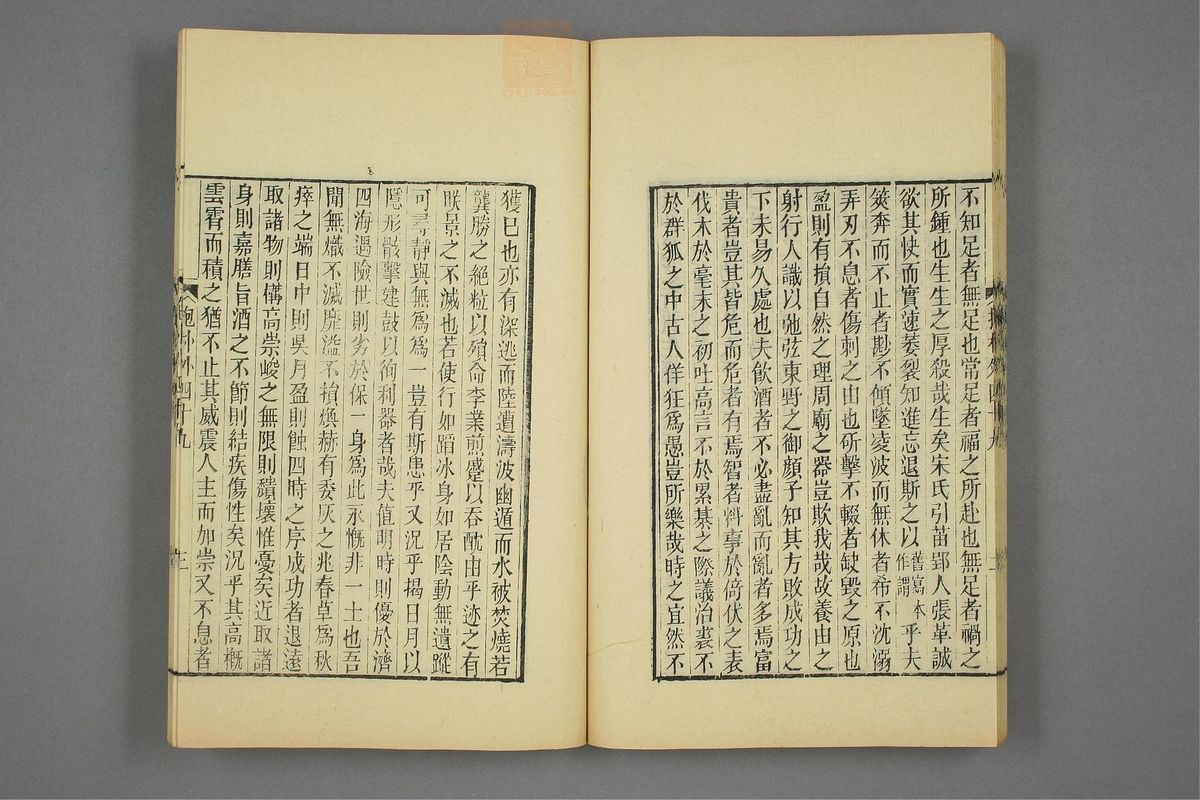 不知足者無足也常足者福之所赴也無足者禍之
所鍾也生生之厚殺哉生矣宋氏引苗郢人張革誠
欲其快而實速萎裂知進忘退斯之以舊寫本作謂乎夫
筴奔而不止者尠不傾墜凌波而無休者希不沈溺
弄刃不息者傷刺之由也斫擊不輟者缺毀之原也
盈則有損自然之理周廟之器豈欺我哉故養由之
射行人識以弛弦東野之御顏子知其方敗成功之
下未易久處也夫飲酒者不必盡亂而亂者多焉富
貴者豈其皆危而危者有焉智者料事於倚伏之表
伐木於毫末之初吐高言不於累棊之際議治裘不
於群狐之中古人佯狂爲愚豈所樂哉時之宜然不
獲巳也亦有深逃而陸遭濤波幽遁而水被焚燒若
龔勝之絕粒以殞命李業煎蹙以吞酖由乎迹之有
眹景之不滅也若使行如蹈冰身如居陰動無遺蹤
可尋靜與無爲爲一豈有斯患乎又況乎揭日月以
隱形骸擊建鼓以徇利器者哉夫值明時則優於濟
四海遇險世則劣於保一身爲此永慨非一士也吾
聞無熾不滅靡溢不損煥赫有委灰之兆春草爲秋
瘁之端日中則昃月盈則蝕四時之序成功者退遠
取諸物則構高崇峻之無限則穨壞惟憂矣近取諸
身則嘉膳旨酒之不節則結疾傷性矣況乎其高概
雲霄而積之猶不止其威震人主而加崇又不息者
抱朴外四十九
三